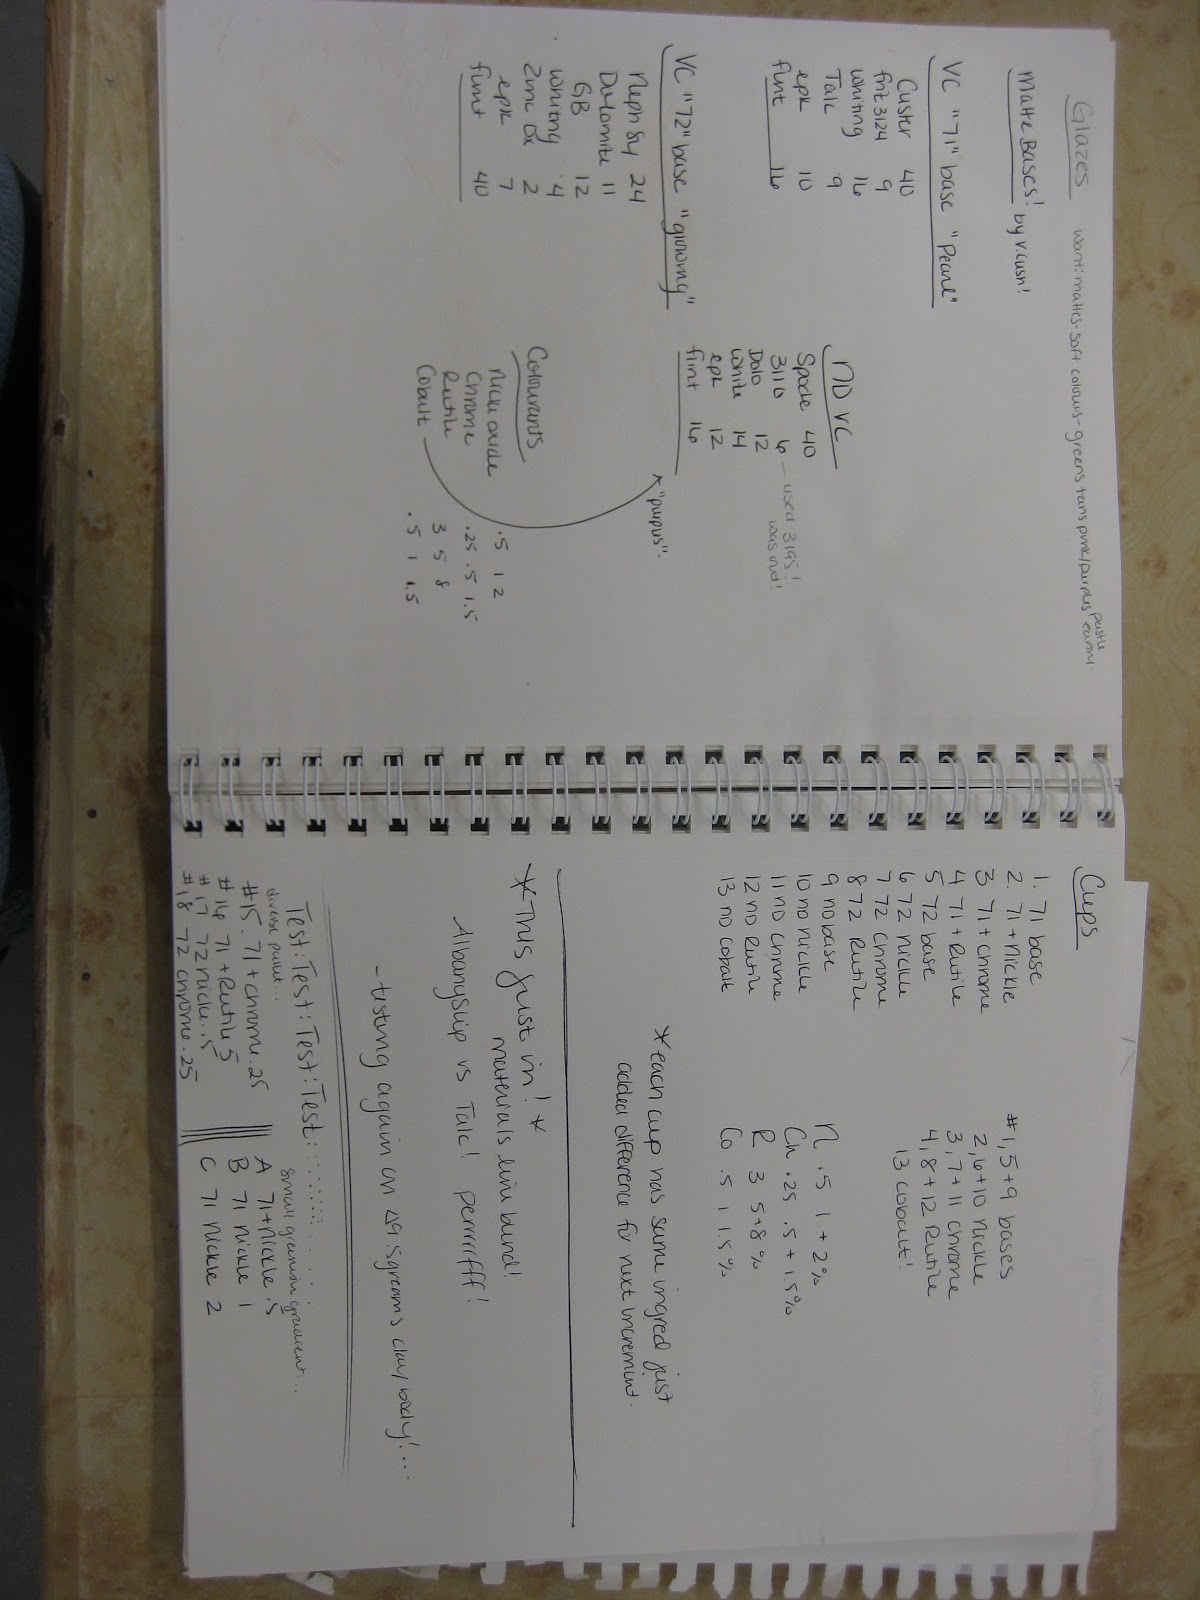 Glazes want: mattes-soft colours-greens tans pink/purples pastle earthy
Matte Bases! by V.Cush!
VC "71" base "Pearl"
Custer 40
frit 3124 9
whiting 16
Talc 9
epk 10
flint 16
VC "72" base "glowing"
Neph sy 24
Dolomite 11
GB 12
whiting 4
Zinc Ox 2
epk 7
flint 40
ND VC
Spode 40
3110 6 - used 3195!
was out!
Dolo 12
white 14
epk 12
flint 16
"purpus".
Colourants
Nickl oxide .5 1 2
Chrome .25 .5 1.5
Rutile 3 5 8
Cobalt .5 1 1.5
Cups
1. 71 base
2. 71 + nickle
3 71 + chrome
4 71 + Rutile
5 72 base
6 72 nickle
7 72 chrome
8 72 Rutile
9 nd base
10 nd nickle
11 nd chrome
12 nd Rutile
13 nd cobalt
#1, 5 + 9 bases
2, 6 + 10 nickle
3, 7 + 11 chrome
4, 8 + 12 Rutile
13 cobalt!
N .5 1 + 2%
Ch .25 .5 + 1.5%
R 3 5 + 8%
Co .5 1 1.5%
*each cup has same ingred just
added difference for next incremint.
*This just in! *
materials line bund!
Albanyslip vs Talc! perrrrfff!
- testing again on Δ9 Sgreams clay body!...
Test: Test: Test: Test:.........
diverse palut...
#15. 71 + chrome .25
#14 71 + Rutile 5
#17 72 nickle .5
#18 72 chrome .25
small greenish gradient...
A 71 + nickle .5
B 71 nickle 1
C 71 nickle 2